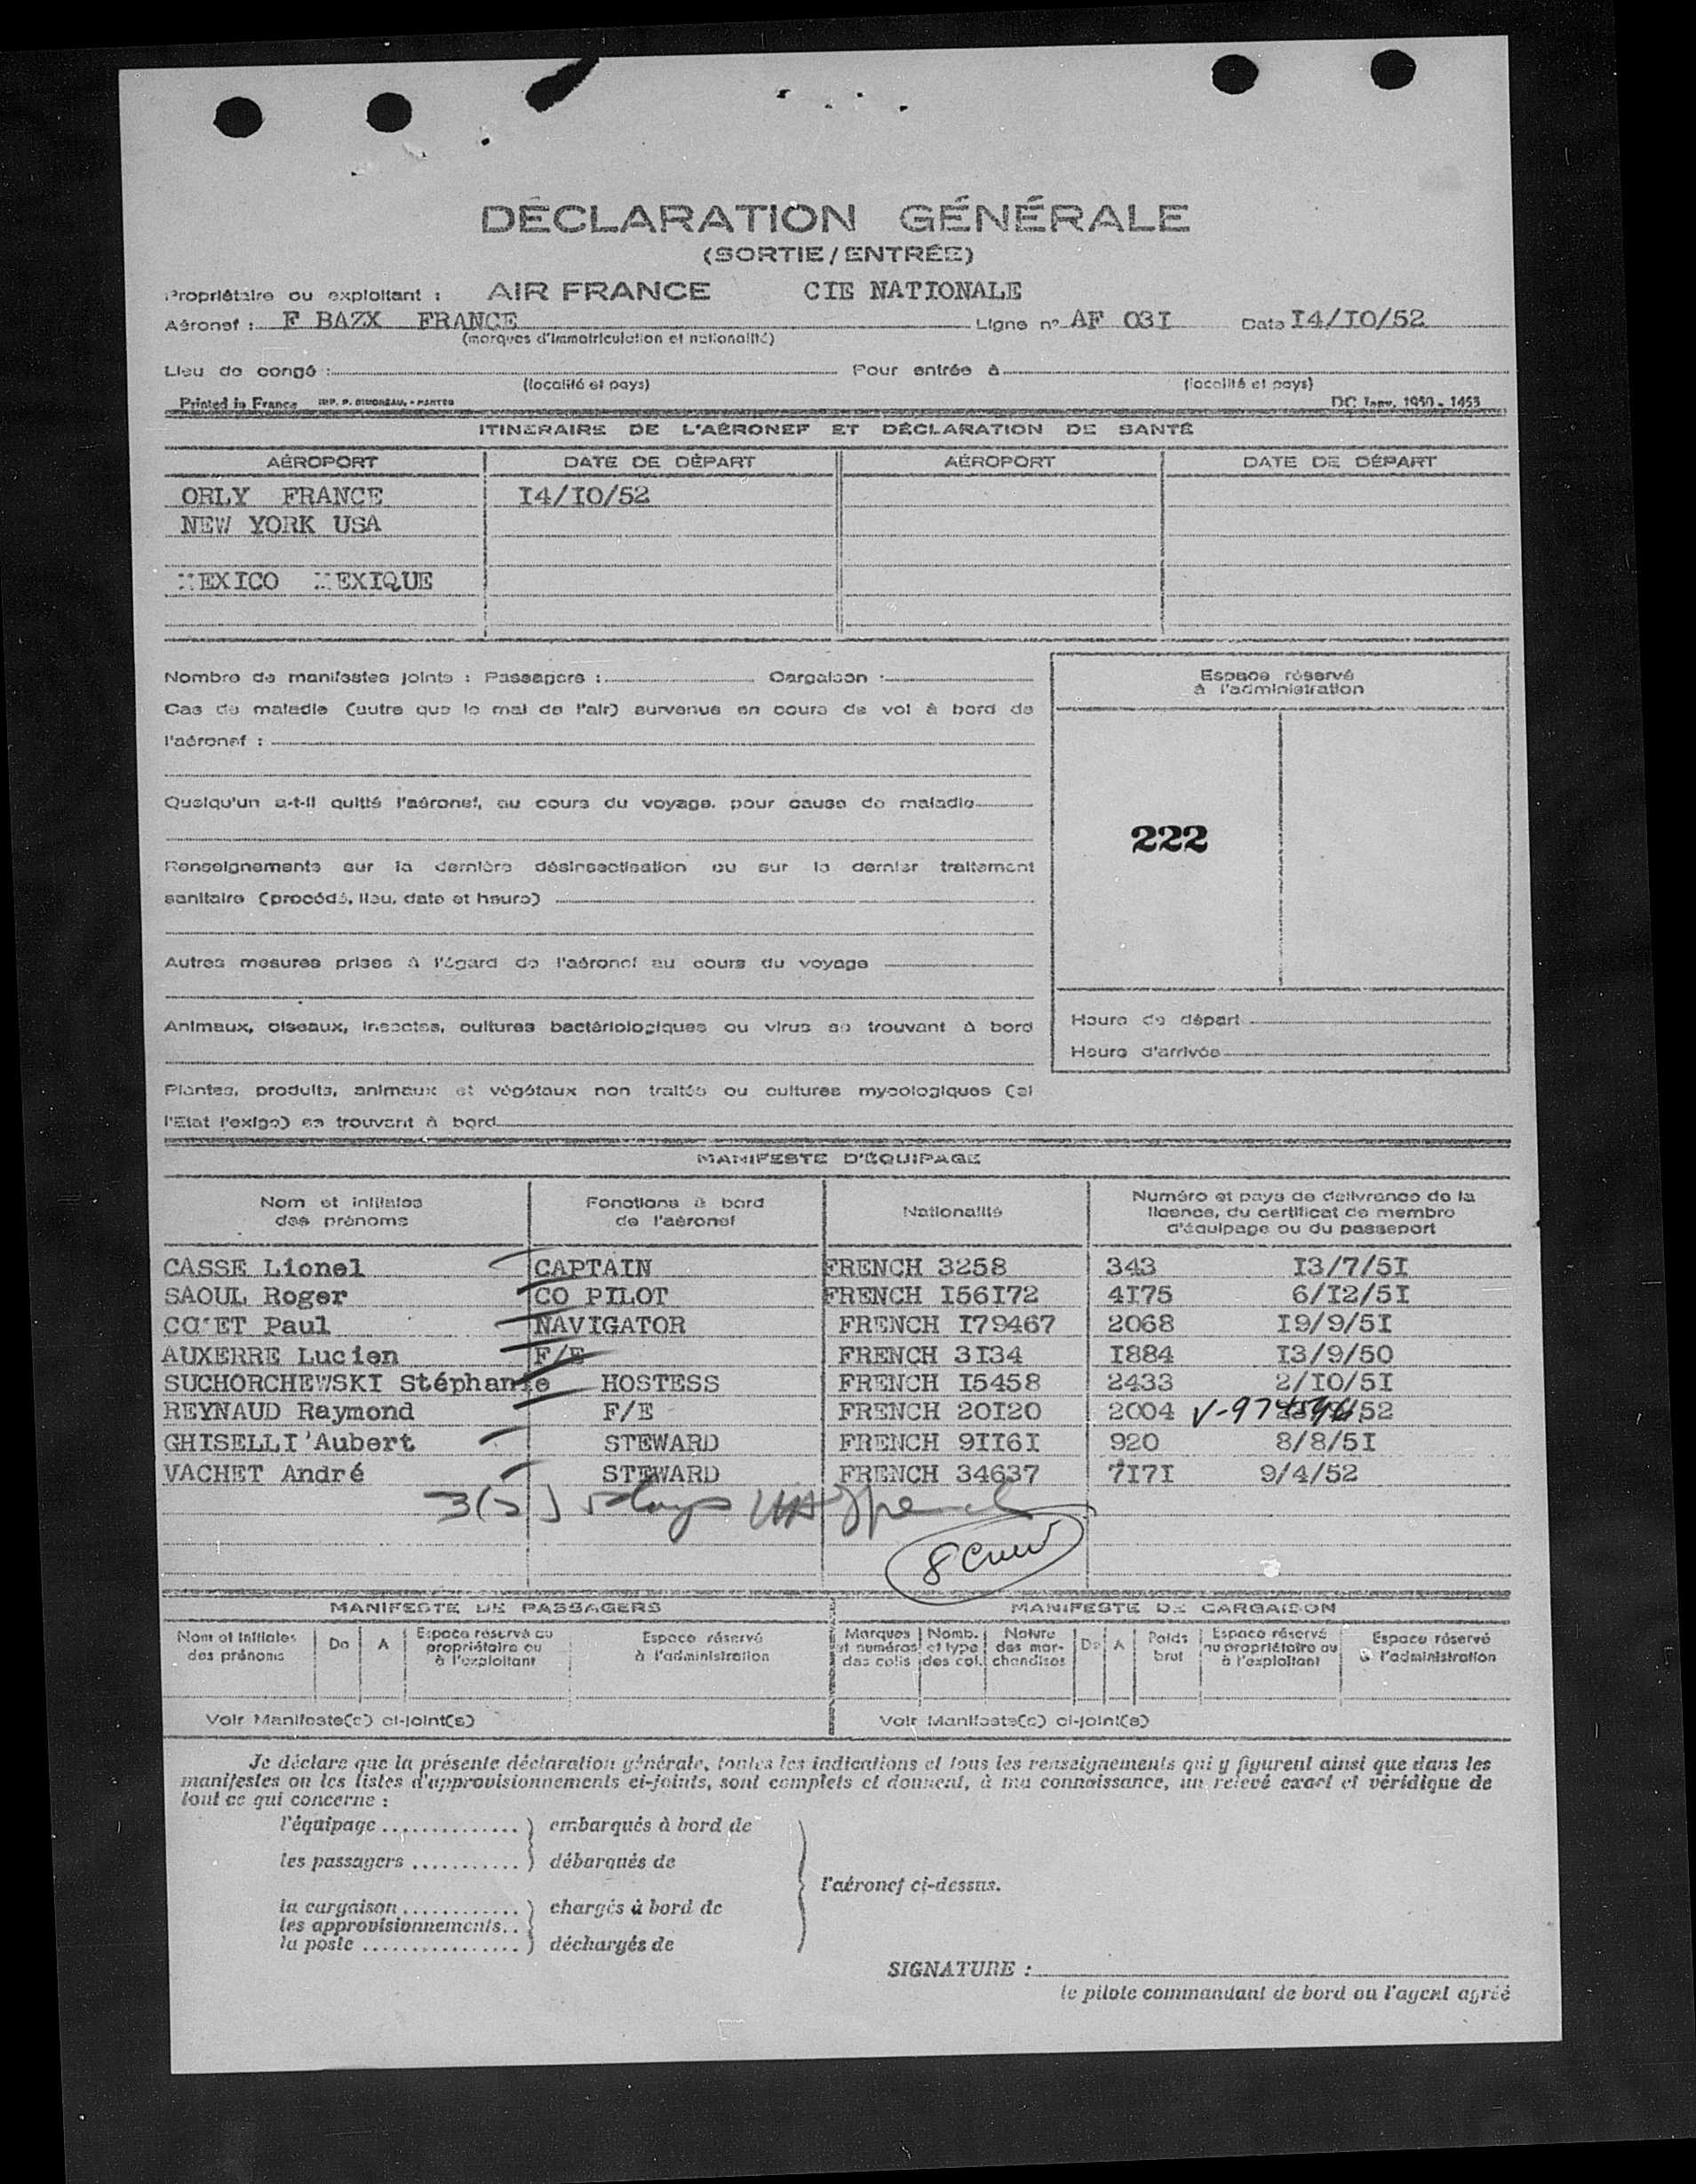 DÉCLARATION GÉNÉRALE
(SORTIE / ENTRÉE)
Propriétaire ou exploitant : AIR FRANCE CIE NATIONALE
Aéronef : F BAZX FRANCE Ligne n° AF 03I Date I4/IO/52
(marques d'immatriculation et nationalité)
Lieu de congé : Pour entrée à
(localité et pays) (localité et pays)
Printed in France IMP. P. - NANTES DC Janv. 1950 - 1453
ITINÉRAIRE DE L'AÉRONEF ET DÉCLARATION DE SANTÉ
AÉROPORT DATE DE DÉPART AÉROPORT DATE DE DÉPART
ORLY FRANCE I4/IO/52
NEW YORK USA
MEXICO MEXIQUE
Nombre de manifestes joints : Passagers : Cargaison :
Cas de maladie (autre que le mal de l'air) survenus en cours de vol à bord de
l'aéronef :
Quelqu'un a-t-il quitté l'aéronef, au cours du voyage, pour cause de maladie
Renseignements sur la dernière désinsectisation ou sur le dernier traitement
sanitaire (procédé, lieu, date et heure)
Autres mesures prises à l'égard de l'aéronef au cours du voyage
Animaux, oiseaux, insectes, cultures bactériologiques ou virus se trouvant à bord
Plantes, produits, animaux et végétaux non traités ou cultures mycologiques (si
l'Etat l'exige) se trouvant à bord
Espace réservé
à l'administration
222
Heure de départ
Heure d'arrivée
MANIFESTE D'ÉQUIPAGE
Nom et initiales des prénoms Fonctions à bord de l'aéronef Nationalité Numéro et pays de délivrance de la licence, du certificat de membre d'équipage ou du passeport
CASSE Lionel CAPTAIN FRENCH 3258 343 I3/7/5I
SAOUL Roger CO PILOT FRENCH I56I72 4I75 6/I2/5I
Paul NAVIGATOR FRENCH I79467 2068 I9/9/5I
AUXERRE Lucien F/E FRENCH 3I34 I884 I3/9/50
SUCHORCHEWSKI Stéphanie HOSTESS FRENCH I5458 2433 2/IO/5I
REYNAUD Raymond F/E FRENCH 20I20 2004 52
GHISELLI'Aubert STEWARD FRENCH 9II6I 920 8/8/5I
VACHET André STEWARD FRENCH 34637 7I7I 9/4/52
3(5)
8 Crew
MANIFESTE DE PASSAGERS MANIFESTE DE CARGAISON
Nom et initiales des prénoms De A Espace réservé au propriétaire ou à l'exploitant Espace réservé à l'administration Marques et numéros des colis Nomb. et type des col. Nature des marchandises De A Poids brut Espace réservé au propriétaire ou à l'exploitant Espace réservé à l'administration
Voir Manifeste(s) ci-joint(s) Voir Manifeste(s) ci-joint(s)
Je déclare que la présente déclaration générale, toutes les indications et tous les renseignements qui y figurent ainsi que dans les
manifestes ou les listes d'approvisionnements ci-joints, sont complets et donnent, à ma connaissance, un relevé exact et véridique de
tout ce qui concerne :
l'équipage .............. ) embarqués à bord de
les passagers ........... ) débarqués de
l'aéronef ci-dessus.
la cargaison ............ ) chargés à bord de
les approvisionnements..
la poste ................ ) déchargés de
SIGNATURE :
le pilote commandant de bord ou l'agent agréé